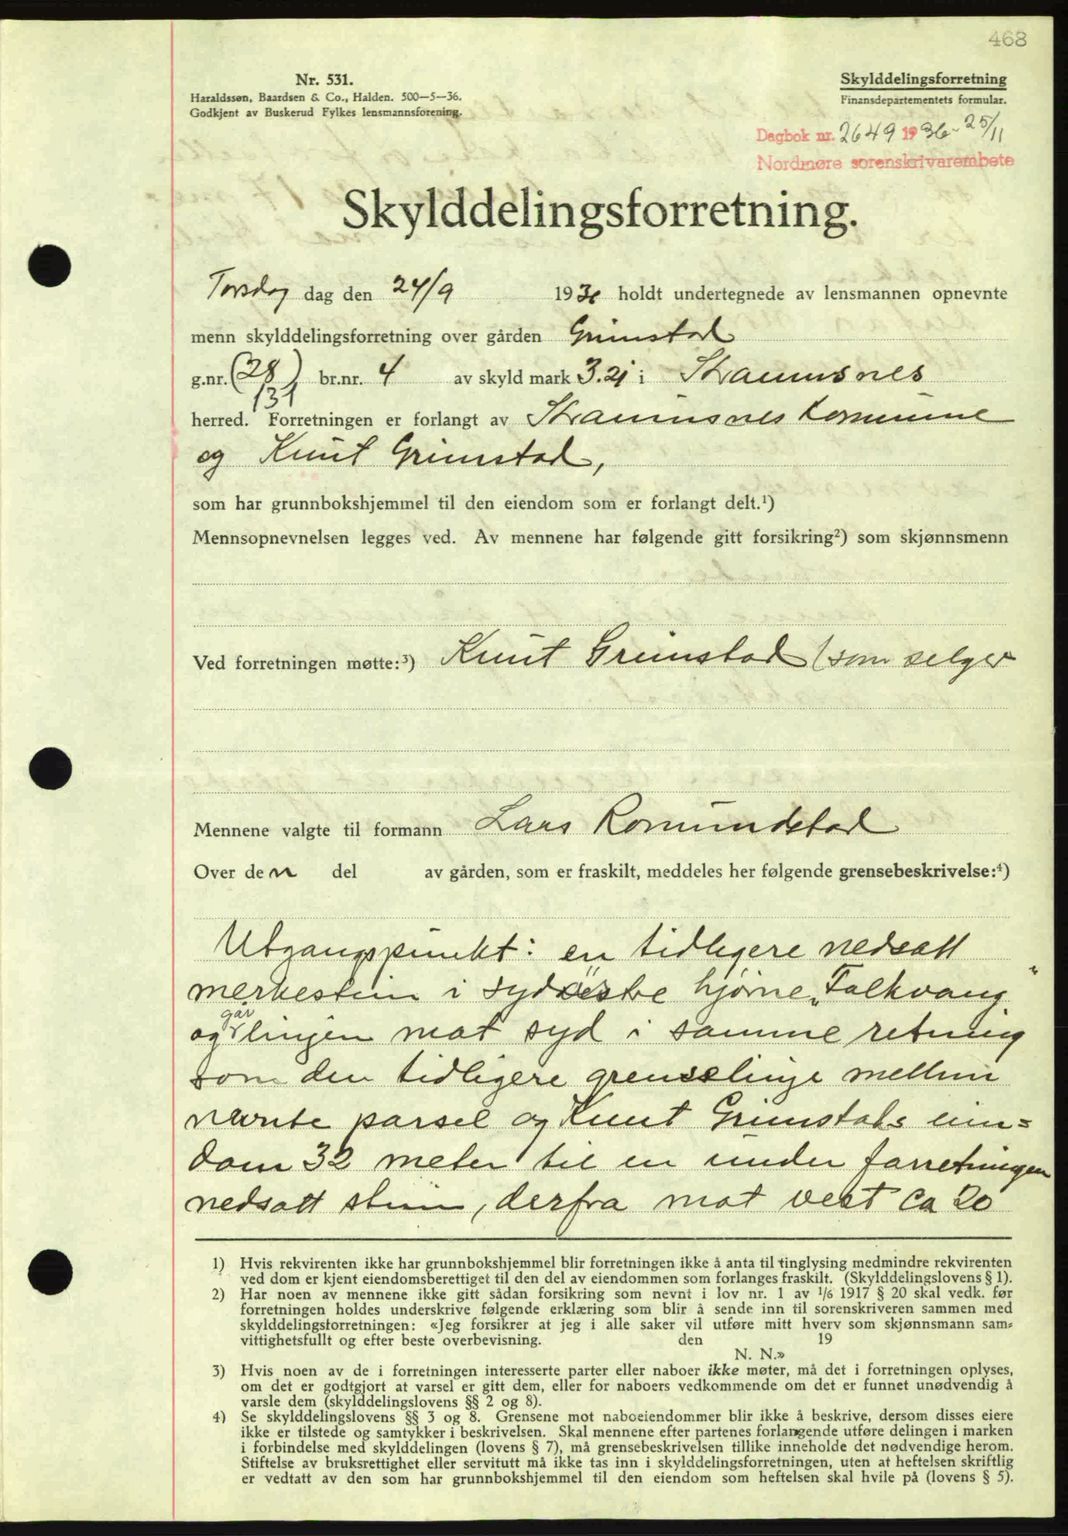 468
Nr. 531.
Haraldssøn, Baardsen & Co., Halden. 500—5—36.
Godkjent av Buskerud Fylkes lensmannsforening.
Skylddelingsforretning
Finansdepartementets formular.
Dagbok nr. 2649 1936 - 25/11
Nordmøre sorenskrivarembete
Skylddelingsforretning.
Torsdag dag den 24/9 1936 holdt undertegnede av lensmannen opnevnte
menn skylddelingsforretning over gården Grimstad
g.nr. (28) br.nr. 4 av skyld mark 3.21 i Straumsnes
131
herred. Forretningen er forlangt av Straumsnes Kommune
og Knut Grimstad,
som har grunnbokshjemmel til den eiendom som er forlangt delt.¹)
Mennsopnevnelsen legges ved. Av mennene har følgende gitt forsikring²) som skjønnsmenn
Ved forretningen møtte:³) Knut Grimstad (som selger
Mennene valgte til formann Lars Romundstad
Over den del av gården, som er fraskilt, meddeles her følgende grensebeskrivelse:⁴)
Utgangspunkt: en tidligere nedsatt
merkestein i sydøstre hjørne „Falkvang“
og går linjen mot syd i samme retning
som den tidligere grenselinje mellem
nevnte parsel og Knut Grimstads eien=
dom 32 meter til en under forretningen
nedsatt stein, derfra mot vest ca 20
1) Hvis rekvirenten ikke har grunnbokshjemmel blir forretningen ikke å anta til tinglysing medmindre rekvirenten
ved dom er kjent eiendomsberettiget til den del av eiendommen som forlanges fraskilt. (Skylddelingslovens § 1).
2) Har noen av mennene ikke gitt sådan forsikring som nevnt i lov nr. 1 av 1/6 1917 § 20 skal vedk. før
forretningen holdes underskrive følgende erklæring som blir å sende inn til sorenskriveren sammen med
skylddelingsforretningen: «Jeg forsikrer at jeg i alle saker vil utføre mitt hverv som skjønnsmann sam=
vittighetsfullt og efter beste overbevisning. den 19
N. N.»
3) Hvis noen av de i forretningen interesserte parter eller naboer ikke møter, må det i forretningen oplyses,
om det er godtgjort at varsel er gitt dem, eller for naboers vedkommende om det er funnet unødvendig å
varsle dem (skylddelingslovens §§ 2 og 8).
4) Se skylddelingslovens §§ 3 og 8. Grensene mot naboeiendommer blir ikke å beskrive, dersom disses eiere
ikke er tilstede og samtykker i beskrivelsen. Skal mennene efter partenes forlangende utføre delingen i marken
i forbindelse med skylddelingen (lovens § 7), må grensebeskrivelsen tillike inneholde det nødvendige herom.
Stiftelse av bruksrettighet eller servitutt må ikke tas inn i skylddelingsforretningen, uten at heftelsen skriftlig
er vedtatt av den som har grunnbokshjemmel til den eiendom som heftelsen skal hvile på (lovens § 5).